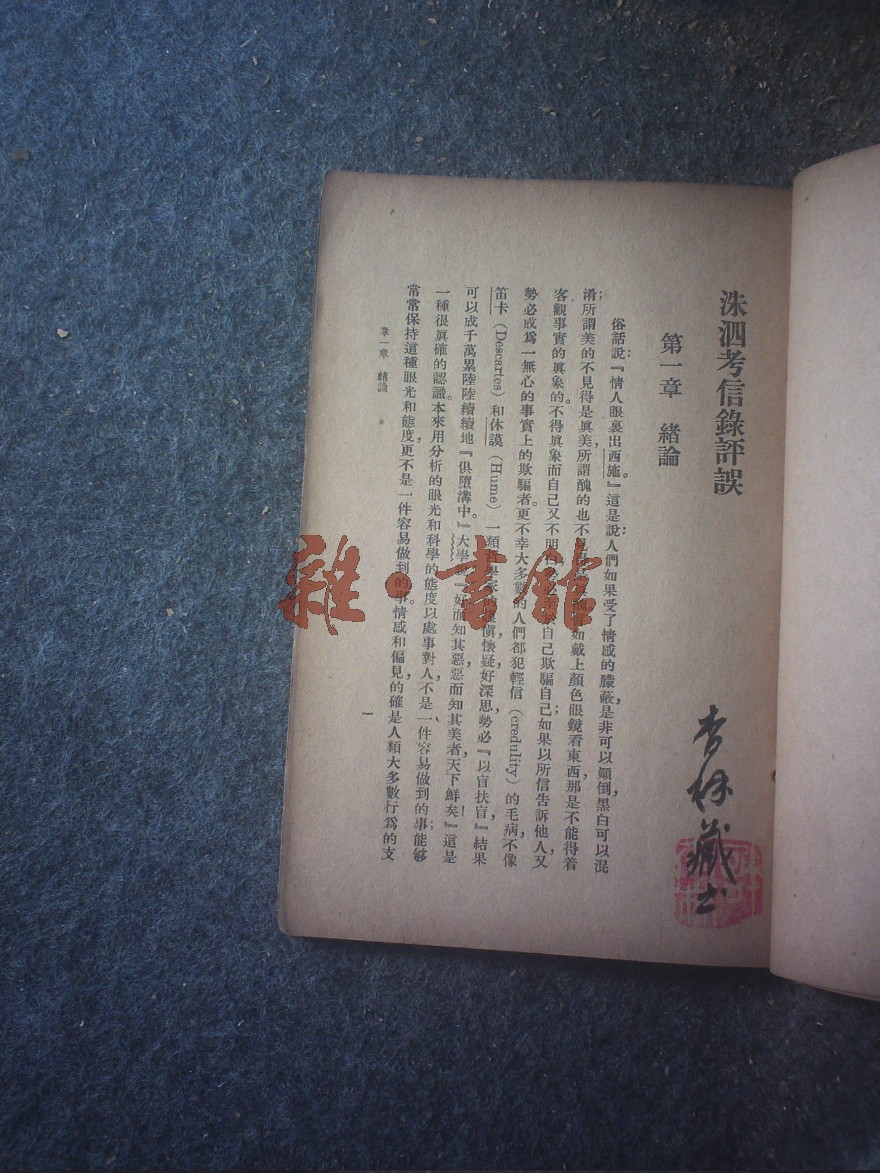 洙泗考信錄評誤
第一章 緒論
俗話說：『情人眼裏出西施。』這是說：人們如果受了情感的朦蔽，是非可以顚倒，黑白可以混
淆；所謂美的不見得是眞美，所謂醜的也不見得 如戴上顏色眼鏡看東西，那是不能得着
客觀事實的眞象的。不得眞象而自己又不明白 自己欺騙自己；如果以所信告訴他人，又
勢必成爲一無心的事實上的欺騙者。更不幸大多數的人們都犯輕信（credulity）的毛病，不像
笛卡（Descartes）和休謨（Hume）一類 學家 愼懷疑，好深思，勢必『以盲扶盲，』結果
可以成千萬累陸陸續續地『俱墮溝中。』大學 『好而知其惡，惡而知其美者，天下鮮矣！』這是
一種很眞確的認識。本來用分析的眼光和科學的態度以處事、對人，不是一件容易做到的事；能够
常常保持這種眼光和態度，更不是一件容易做到的事。情感和偏見，的確是人類大多數行爲的支
章一章 緒論
一
杏林藏书
雜·書館